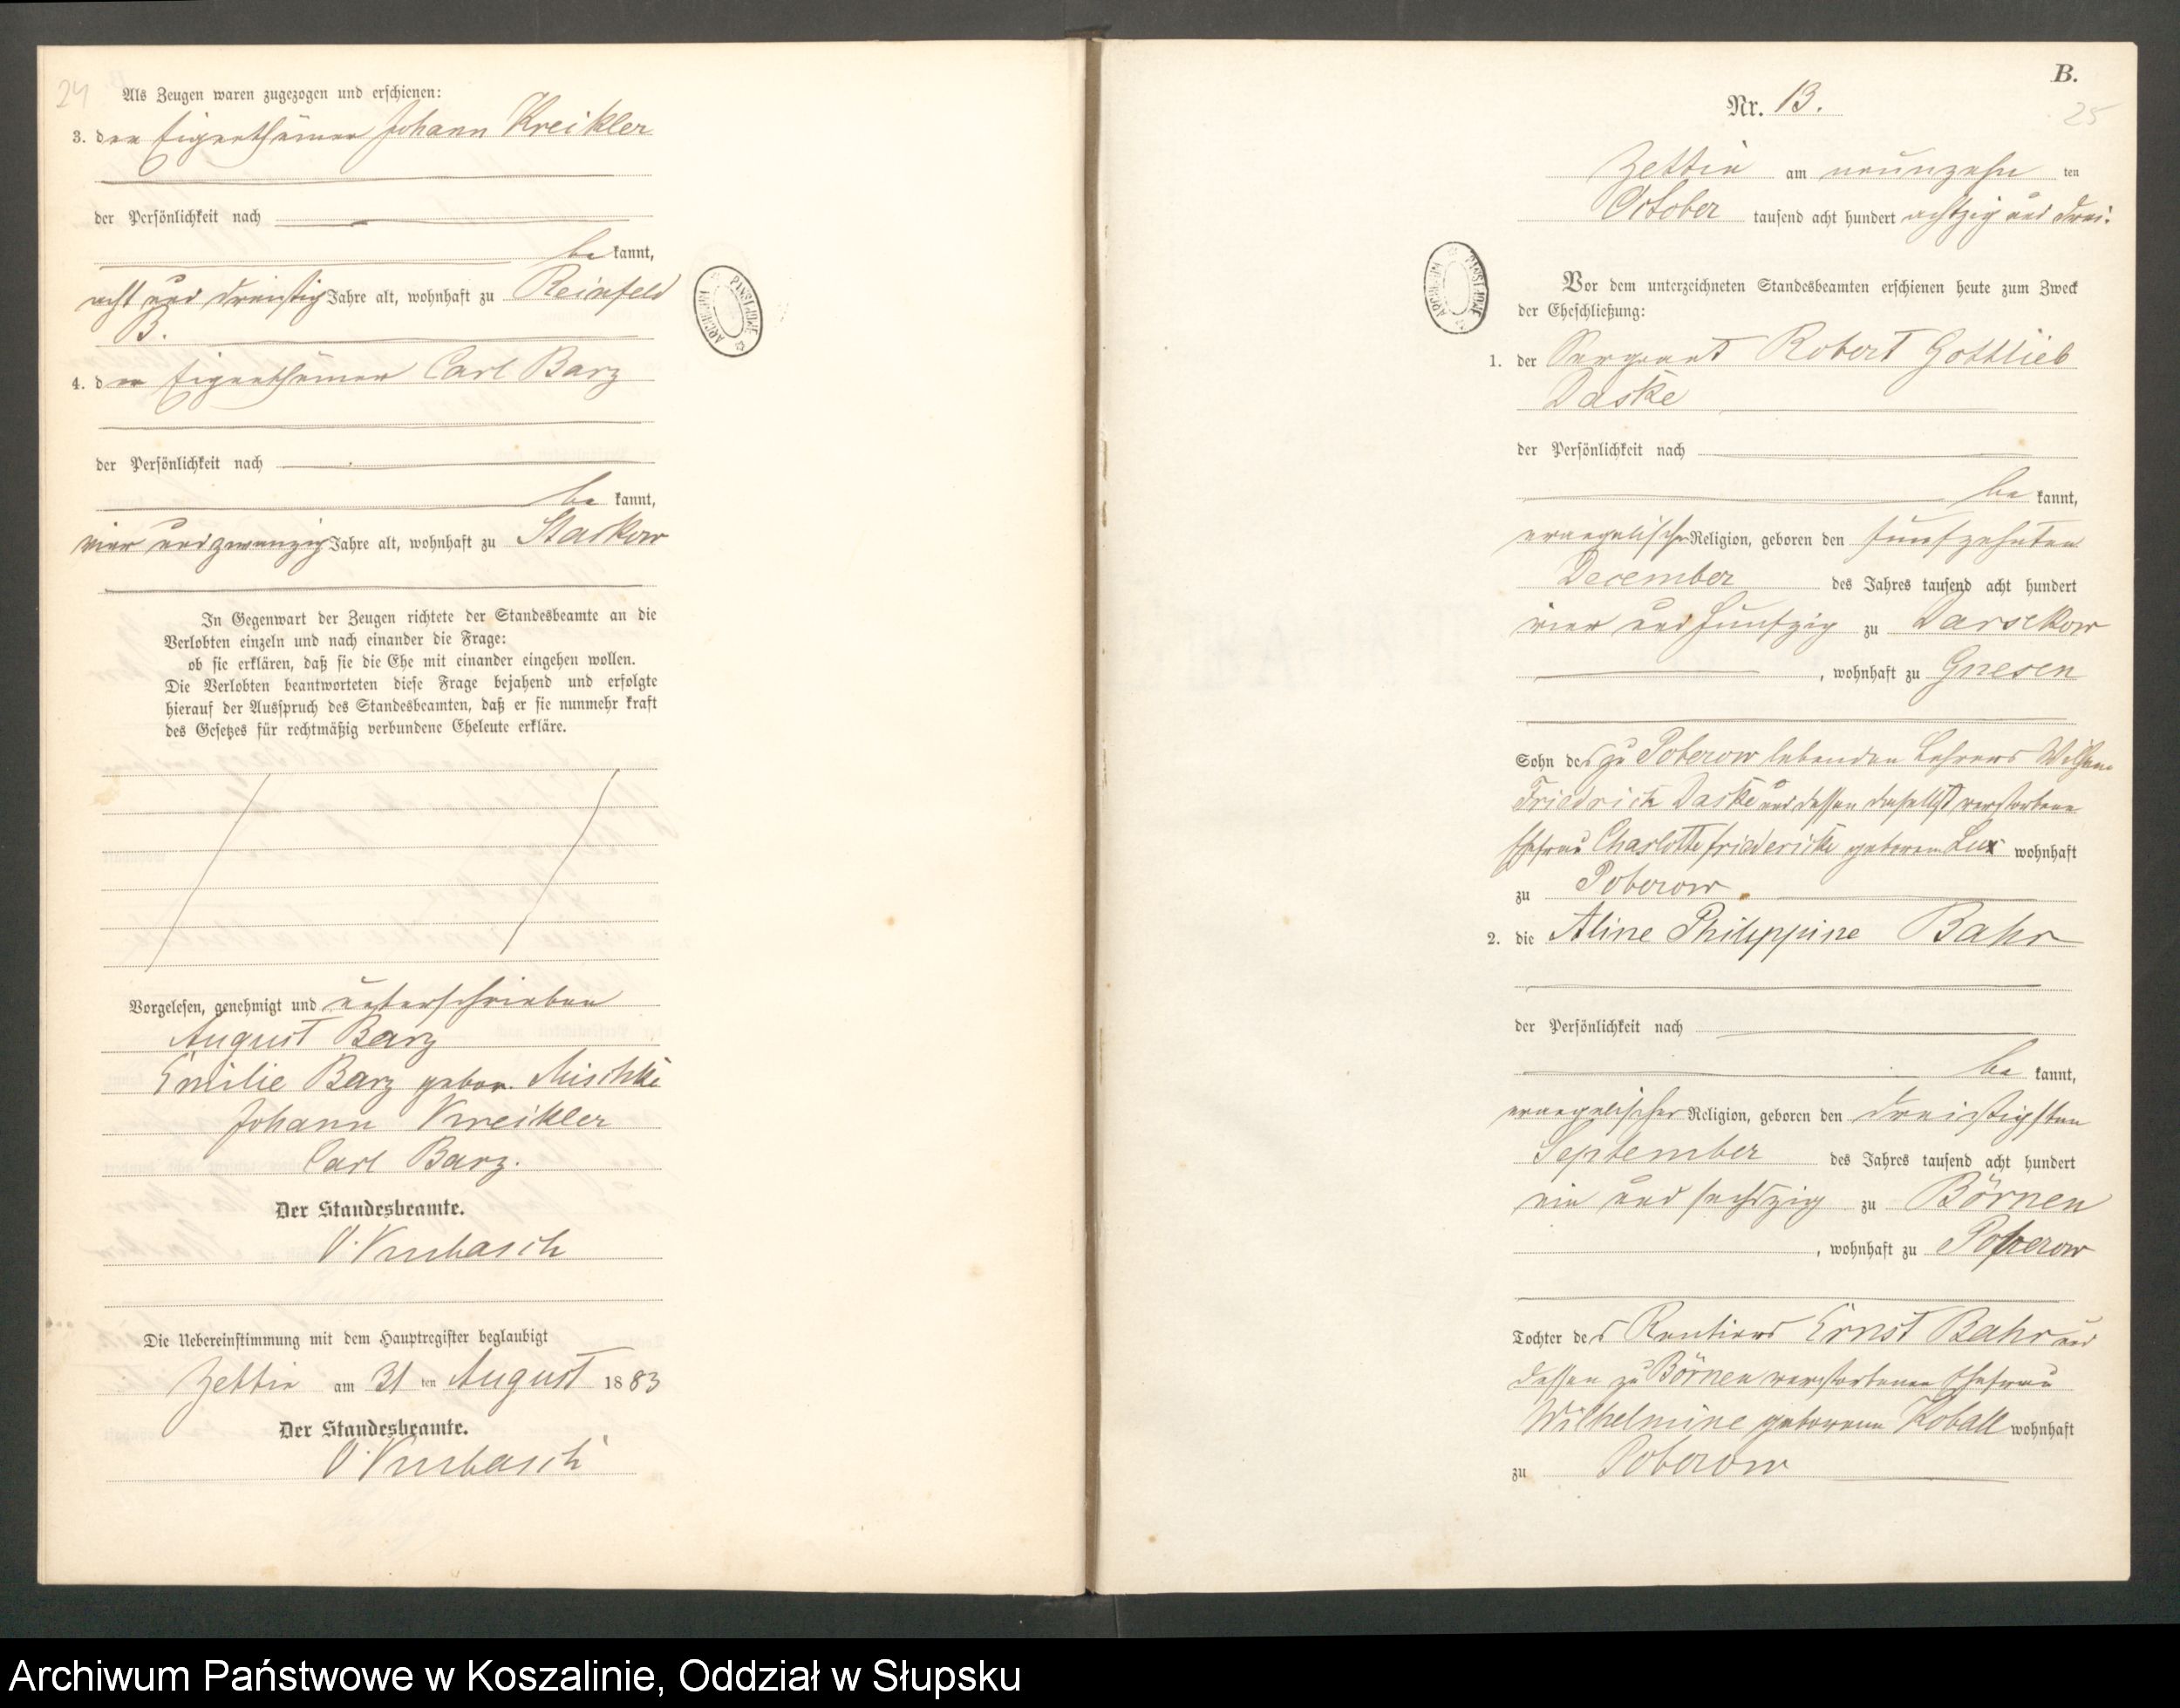 24
Als Zeugen waren zugezogen und erschienen:
3. der Eigenthümer Johann Kreikler
der Persönlichkeit nach
be kannt,
acht und dreißig Jahre alt, wohnhaft zu Reinfeld
B.
4. der Eigenthümer Carl Barz
der Persönlichkeit nach
be kannt,
vier und zwanzig Jahre alt, wohnhaft zu Starkow
In Gegenwart der Zeugen richtete der Standesbeamte an die
Verlobten einzeln und nach einander die Frage:
ob sie erklären, daß sie die Ehe mit einander eingehen wollen.
Die Verlobten beantworteten diese Frage bejahend und erfolgte
hierauf der Ausspruch des Standesbeamten, daß er sie nunmehr kraft
des Gesetzes für rechtmäßig verbundene Eheleute erkläre.
Vorgelesen, genehmigt und unterschrieben
August Barz
Emilie Barz gebor. Mischke
Johann Kreikler
Carl Barz.
Der Standesbeamte.
Die Uebereinstimmung mit dem Hauptregister beglaubigt
Zettin am 31 ten August 1883
Der Standesbeamte.
B.
25
Nr. 13.
Zettin am neunzehn ten
October tausend acht hundert achtzig und drei.
Vor dem unterzeichneten Standesbeamten erschienen heute zum Zweck
der Eheschließung:
1. der Sergeant Robert Gottlieb
Daske
der Persönlichkeit nach
be kannt,
evangelischer Religion, geboren den fünfzehnten
December des Jahres tausend acht hundert
vier und fünfzig zu Darsekow
, wohnhaft zu Gnesen
Sohn des zu Poberow lebenden Lehrers Wilhelm
Friedrich Daske und dessen daselbst verstorbene
Ehefrau Charlotte Friedericke geborene Lux wohnhaft
zu Poberow
2. die Aline Philippine Bahr
der Persönlichkeit nach
be kannt,
evangelischer Religion, geboren den dreißigsten
September des Jahres tausend acht hundert
ein und sechszig zu Börnen
, wohnhaft zu Poberow
Tochter des Rentiers Ernst Bahr und
dessen zu Börnen verstorbenen Ehefrau
Wilhelmine geborene Koball wohnhaft
zu Poberow
Archiwum Państwowe w Koszalinie, Oddział w Słupsku